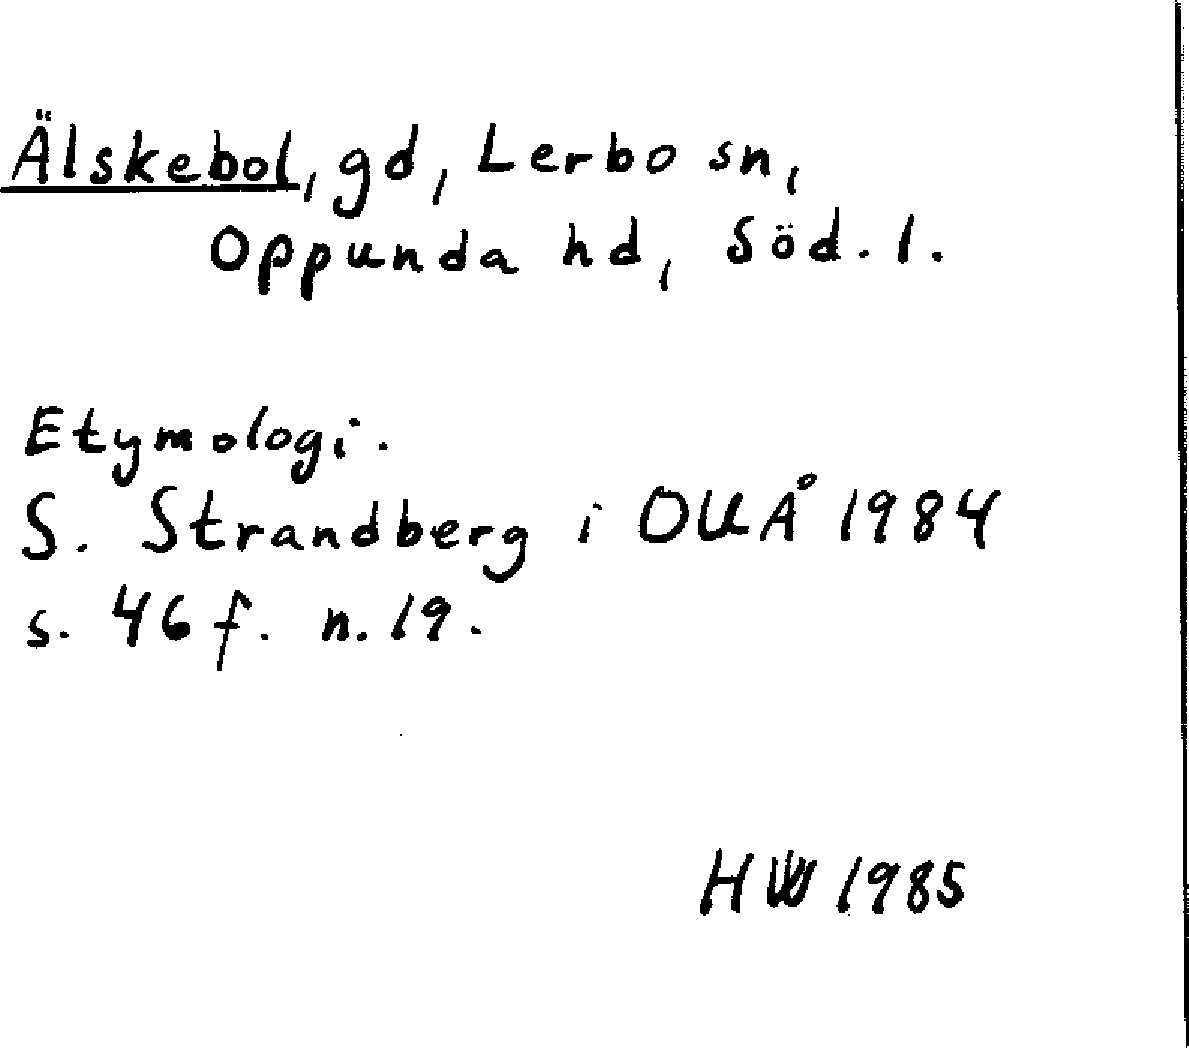 Älskebol, gd, Lerbo sn,
Oppunda hd, Söd. l.
Etymologi.
S. Strandberg i OUÅ 1984
s. 46 f. n. 19.
HW 1985